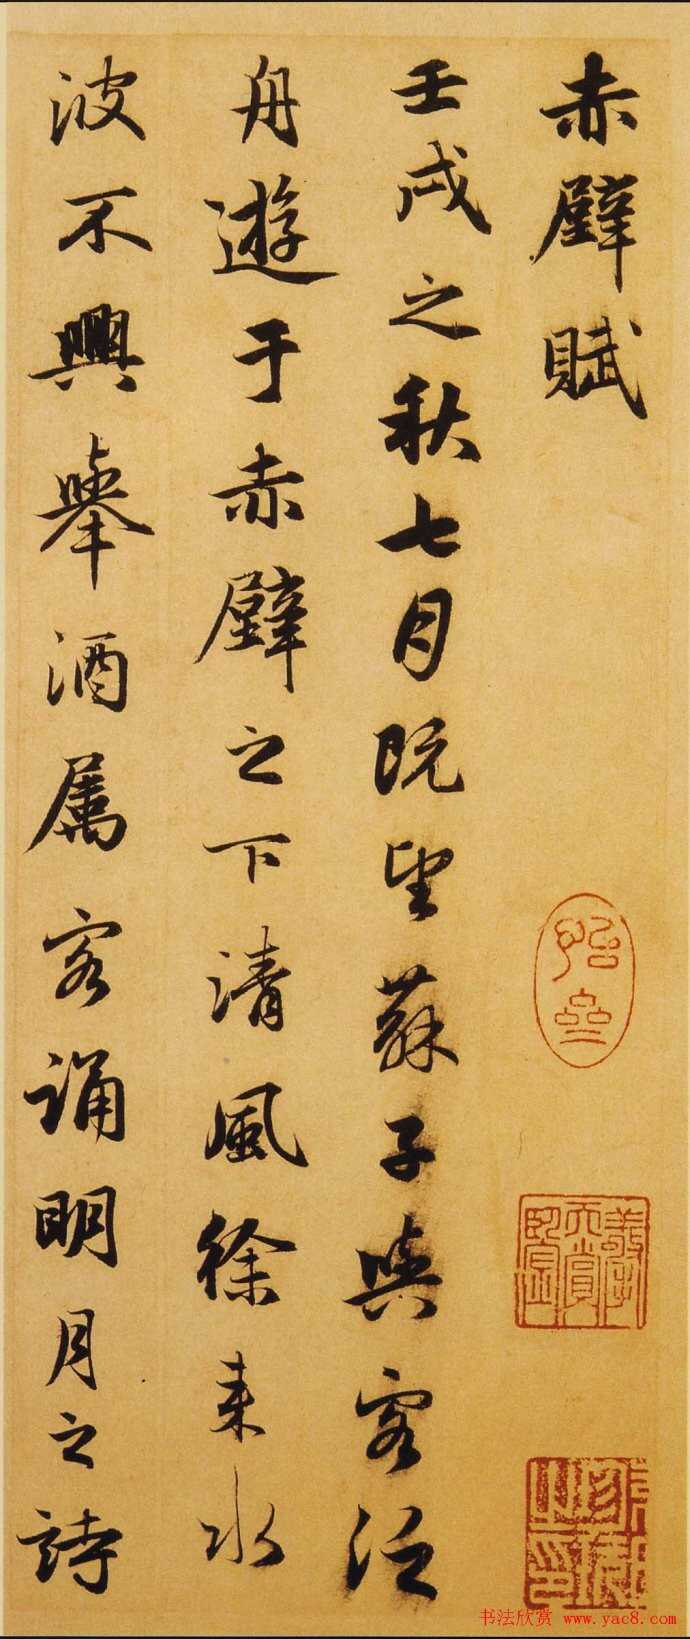 赤壁賦
壬戌之秋七月既望蘇子與客泛
舟遊于赤壁之下清風徐來水
波不興舉酒属客誦明月之詩
书法欣赏 www.yac8.com